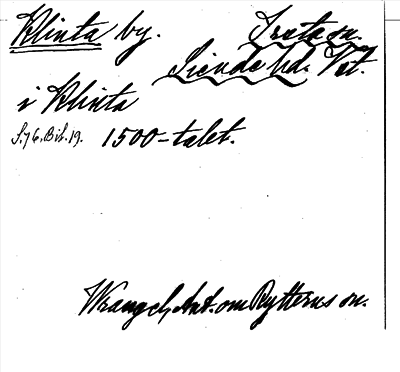 Klinta by. Irsta sn.
Siende hd. Vst.
i Klinta
S. 76, Bil. 19. 1500-talet.
Wrangel, Ant. om Rytterns sn.